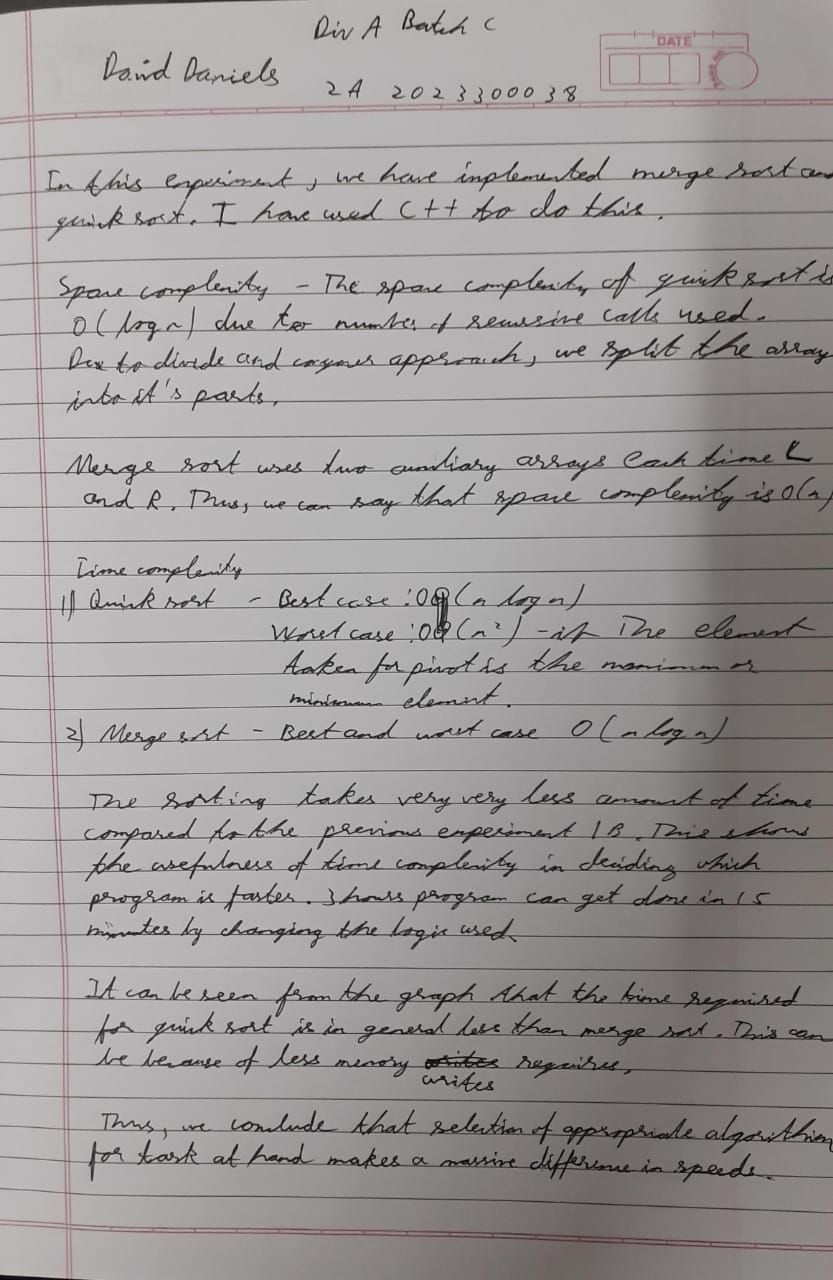 Div A Batch C
DATE
David Daniels
2A 2023300038
In this experiment, we have implemented merge sort and
quick sort. I have used C++ to do this.
Space complexity - The space complexity of quick sort is
O(log n) due to number of recursive calls used.
Due to divide and conquer approach, we split the array
into it's parts.
Merge sort uses two auxiliary arrays each time L
and R. Thus, we can say that space complexity is O(n)
Time complexity
1) Quick sort - Best case : O(n log n)
Worst case : O(n²) - if The element
taken for pivot is the maximum or
minimum element.
2) Merge sort - Best and worst case O(n log n)
The sorting takes very very less amount of time
compared to the previous experiment 1B. This shows
the usefulness of time complexity in deciding which
program is faster. 3 hours program can get done in 15
minutes by changing the logic used.
It can be seen from the graph that the time required
for quick sort is in general less than merge sort. This can
be because of less memory writes requires.
Thus, we conclude that selection of appropriate algorithim
for task at hand makes a massive difference in speeds.